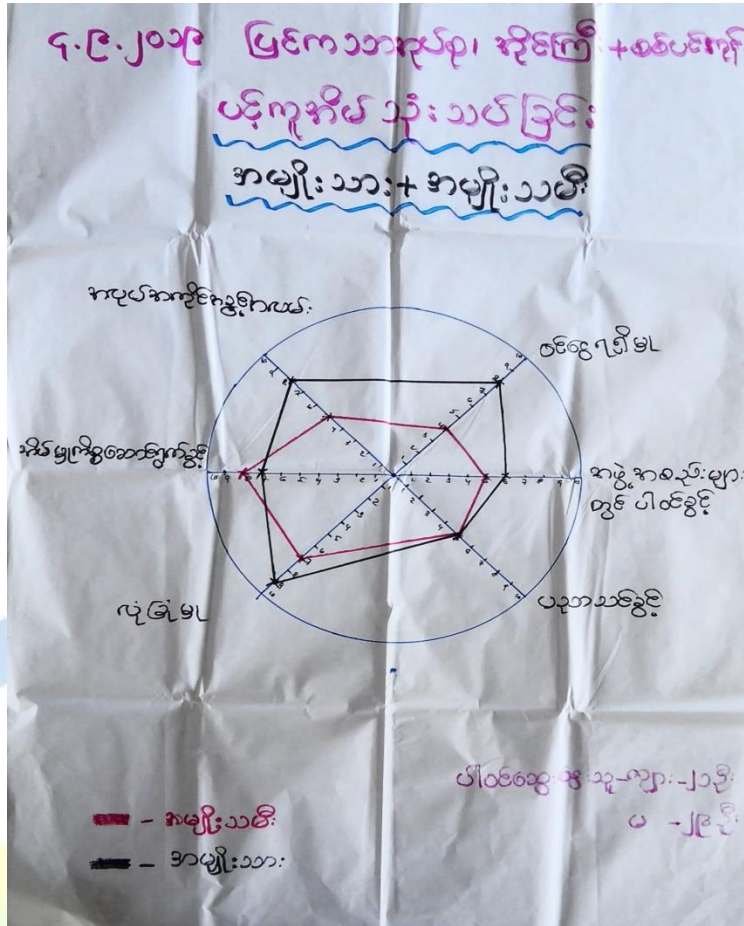 ၄.၉.၂၀၁၉ ပြင်ကသာအုပ်စု၊
ပင့်ကူအိမ် သုံးသပ်ခြင်း
အမျိုးသား + အမျိုးသမီး
အလုပ်အကိုင်အခွင့်အလမ်း
ဝင်ငွေရရှိမှု
အိမ်မှုကိစ္စဆောင်ရွက်ခွင့်
အဖွဲ့အစည်းများ
တွင် ပါဝင်ခွင့်
လုံခြုံမှု
ပညာသင်ခွင့်
ပါဝင်ဆွေးနွေးသူ-ကျား-၂၁ဦး
မ - ၂၉ဦး
- အမျိုးသမီး
- အမျိုးသား